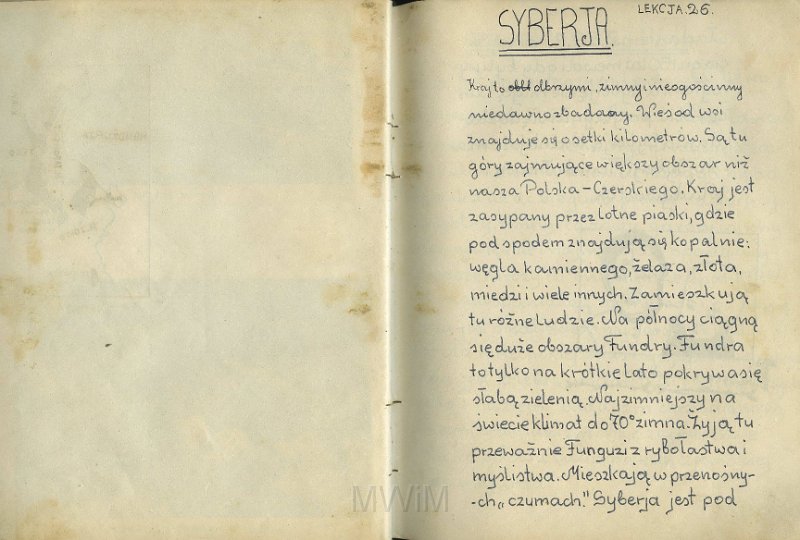 LEKCJA.26.
SYBERJA.
Kraj to obł olbrzymi, zimny i nieogościnny
niedawno zbadany. Wieś od wsi
znajduje się o setki kilometrów. Są tu
góry zajmujące większy obszar niż
nasza Polska - Czerskiego. Kraj jest
zasypany przez lotne piaski, gdzie
pod spodem znajdują się kopalnie:
węgla kamiennego, żelaza, złota,
miedzi i wiele innych. Zamieszkują
tu różne ludzie. Na północy ciągną
się duże obszary Fundry. Fundra
to tylko na krótkie lato pokrywa się
słabą zielenią. Najzimniejszy na
świecie klimat do 70° zimna. Żyją tu
przeważnie Funguzi z rybołastwa i
myślistwa. Mieszkają w przenośny-
-ch „czumach." Syberja jest pod
MWiM